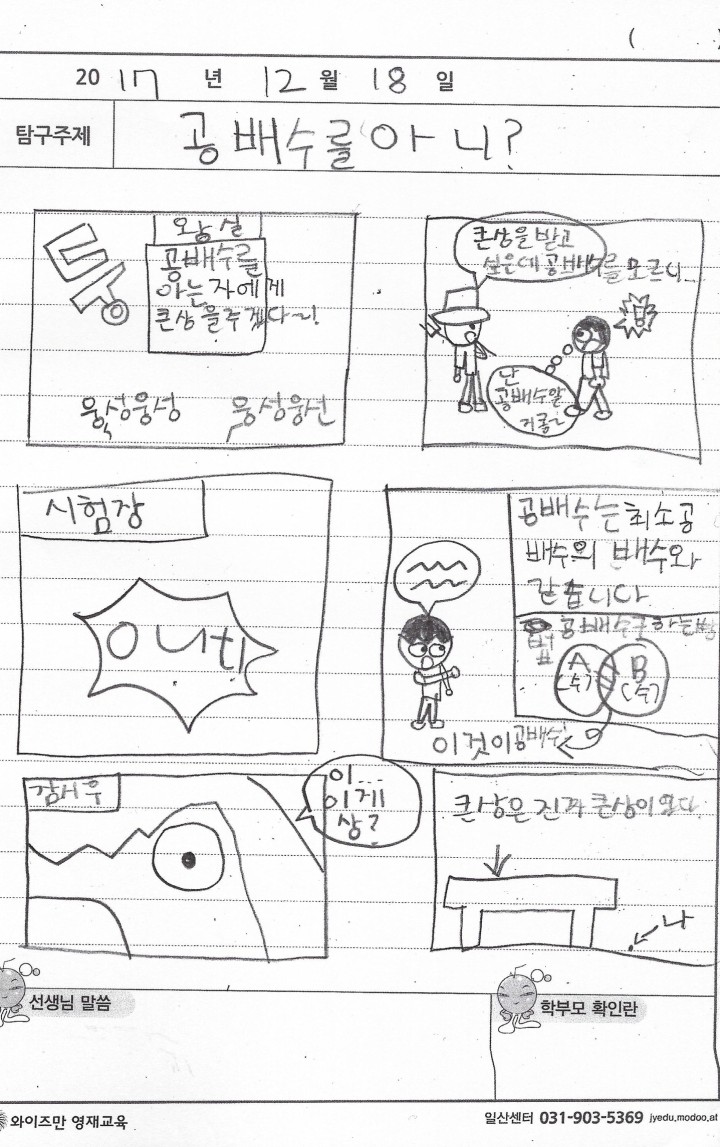 2017년 12월 18일
탐구주제
공배수를 아니?
탕
왕실
공배수를
아는 자에게
큰상을주겠다~!
웅성웅성
웅성웅성
큰상을 받고
싶은데 공배수를 모르니...
난
공배수알
거굴~
시험장
공배수는 최소공
배수의 배수와
같습니다
공배수구하는방
법
A
B
이것이공배수!
이...
이게
상?
큰상은 진짜 큰상이였다
나
선생님 말씀
학부모 확인란
와이즈만 영재교육
일산센터 031-903-5369 jyedu.modoo.at